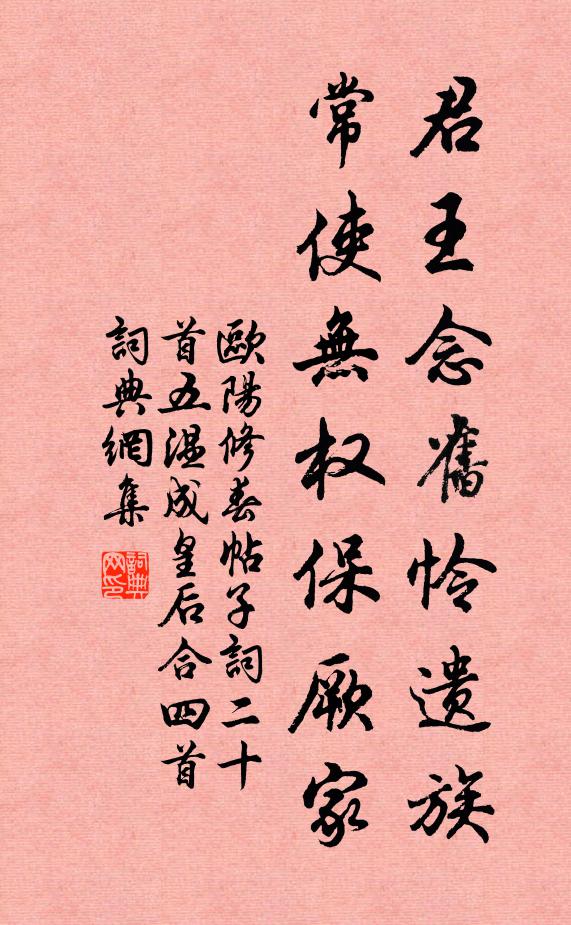 君王念舊怜遺族
常使無权保厥家
歐陽修春帖子詞二十
首五溫成皇后合四首
詞典網集
詞典
网印